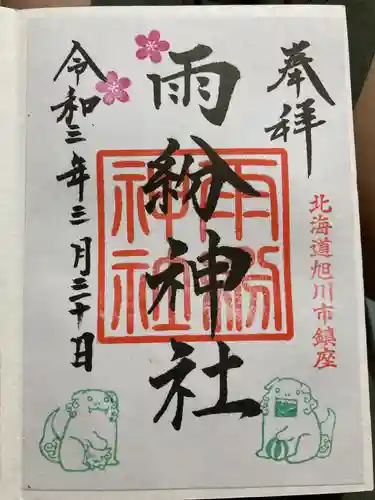 奉拝
北海道旭川市鎮座
雨紛神社
雨紛神社
令和三年三月三十日